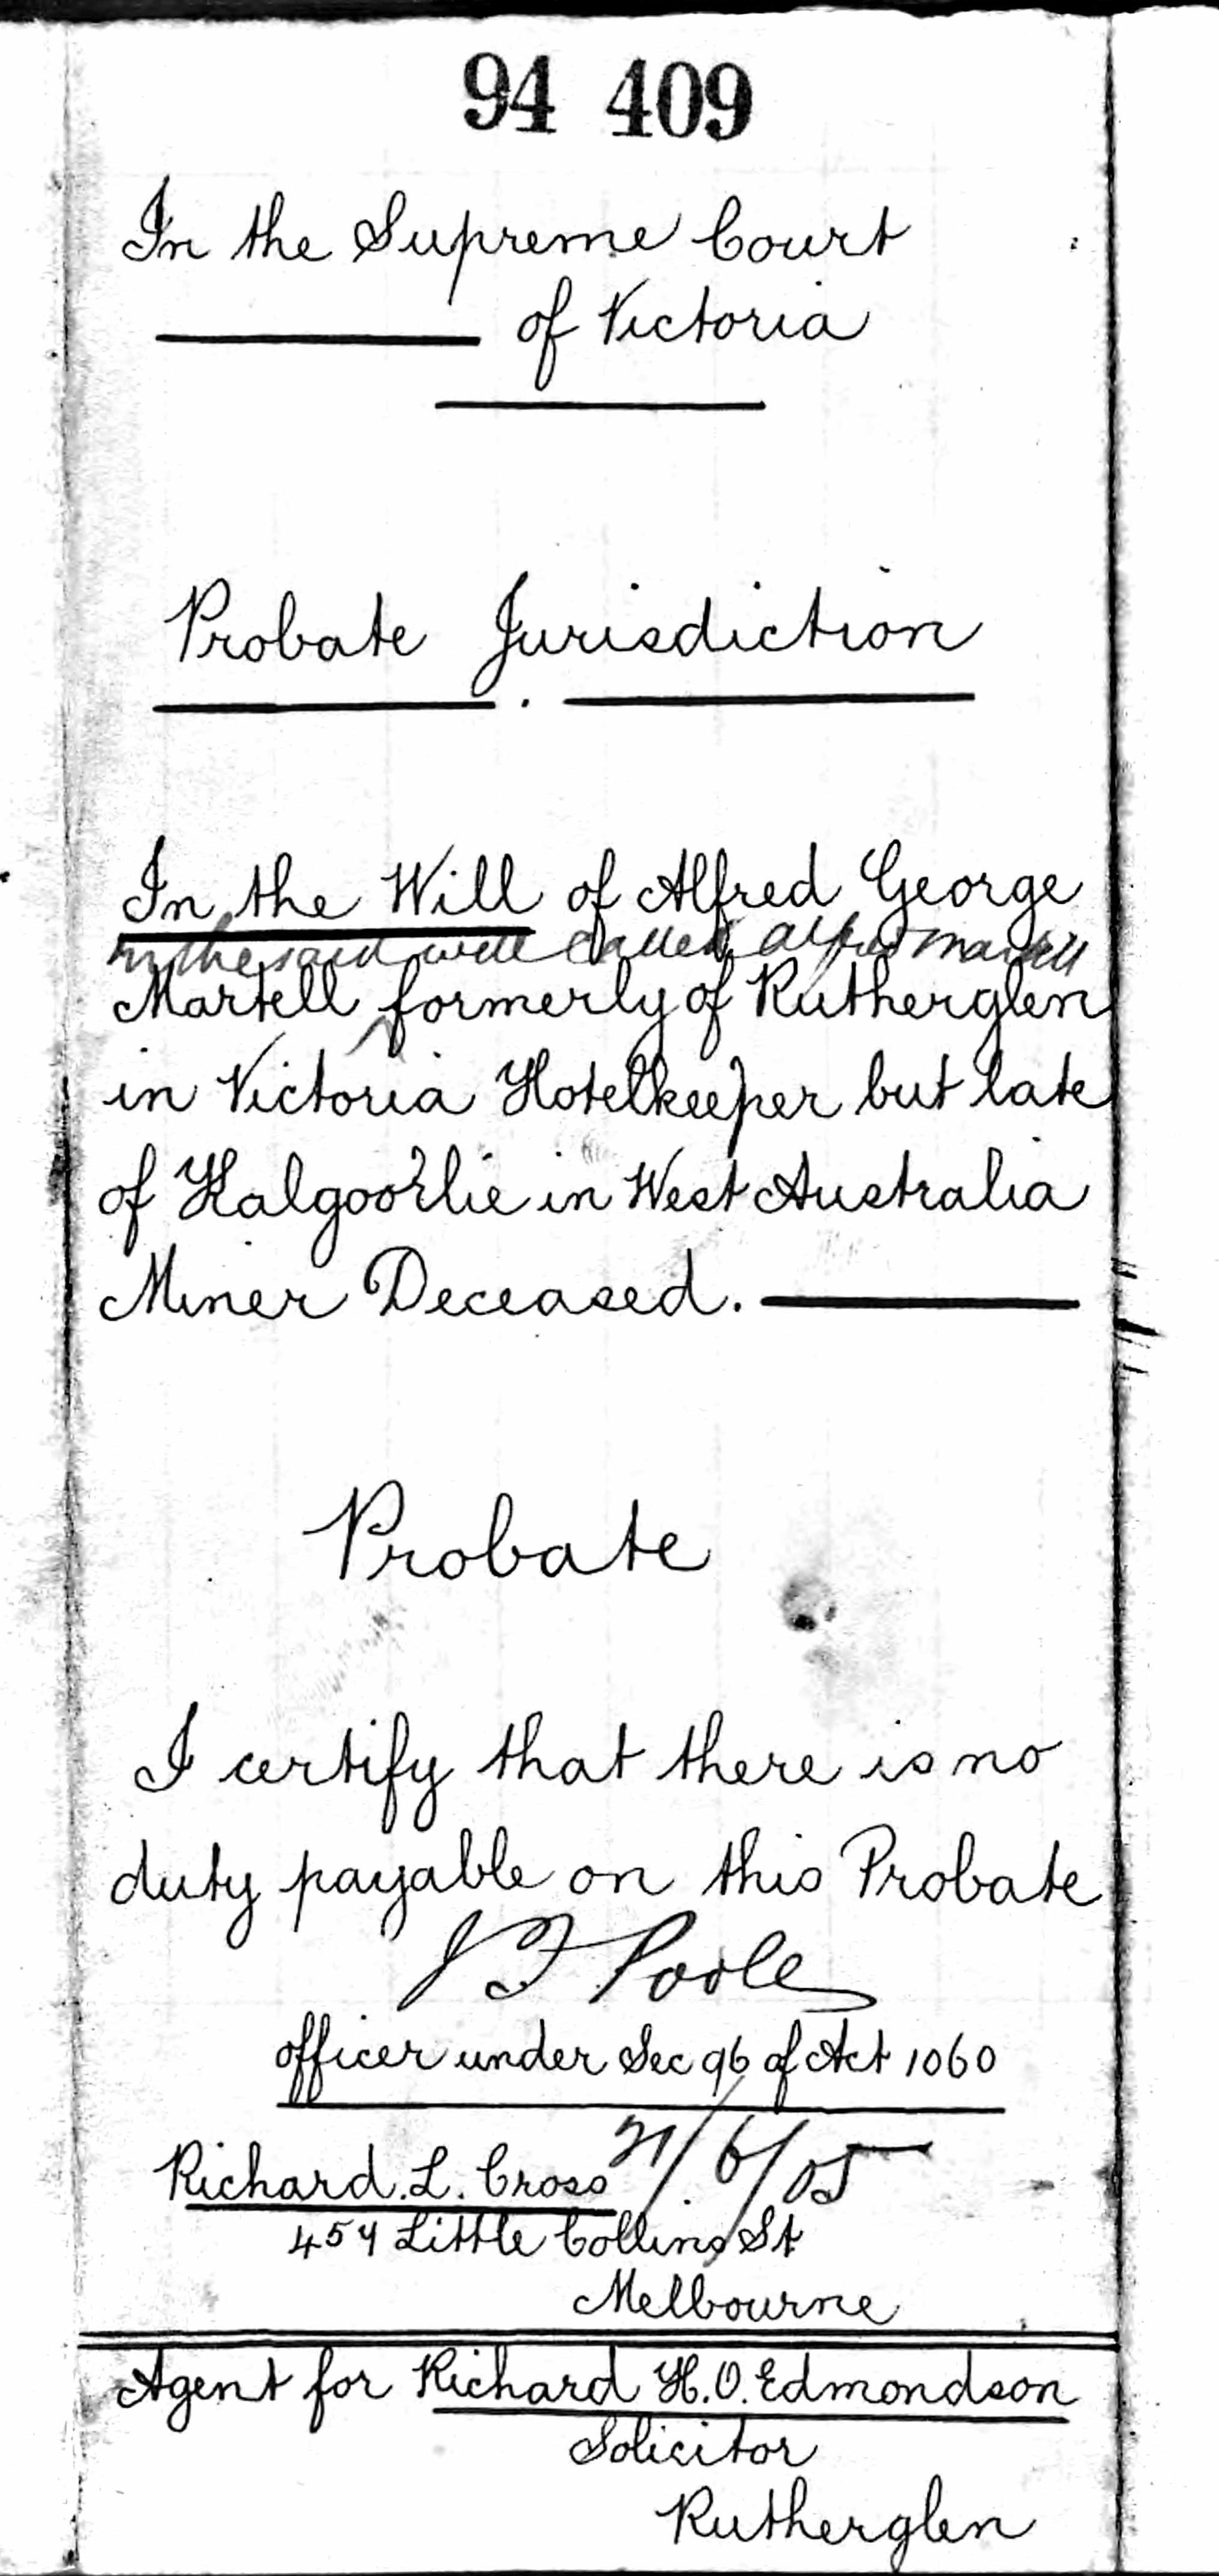 94 409
In the Supreme Court
of Victoria
Probate Jurisdiction
In the Will of Alfred George
in the said will called Alfred Martell
Martell formerly of Rutherglen
in Victoria Hotelkeeper but late
of Kalgoorlie in West Australia
Miner Deceased.
Probate
I certify that there is no
duty payable on this Probate
J F Poole
officer under Sec 96 of Act 1060
21/6/05
Richard. L. Cross
454 Little Collins St
Melbourne
Agent for Richard H. O. Edmondson
Solicitor
Rutherglen